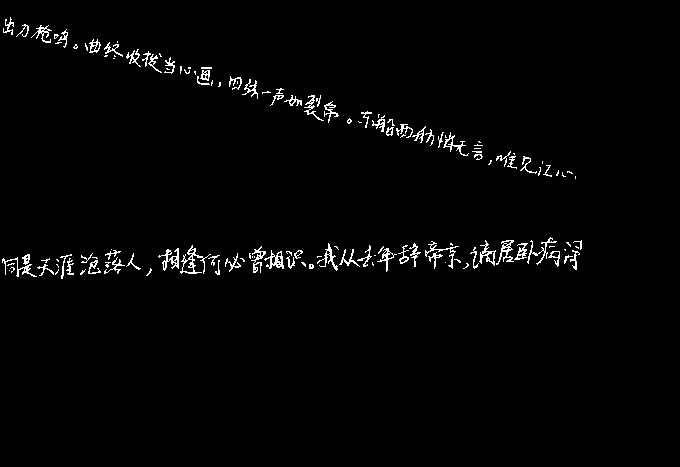 出刀枪鸣。曲终收拨当心画，四弦一声如裂帛。东船西舫悄无言，唯见江心
同是天涯沦落人，相逢何必曾相识。我从去年辞帝京，谪居卧病浔